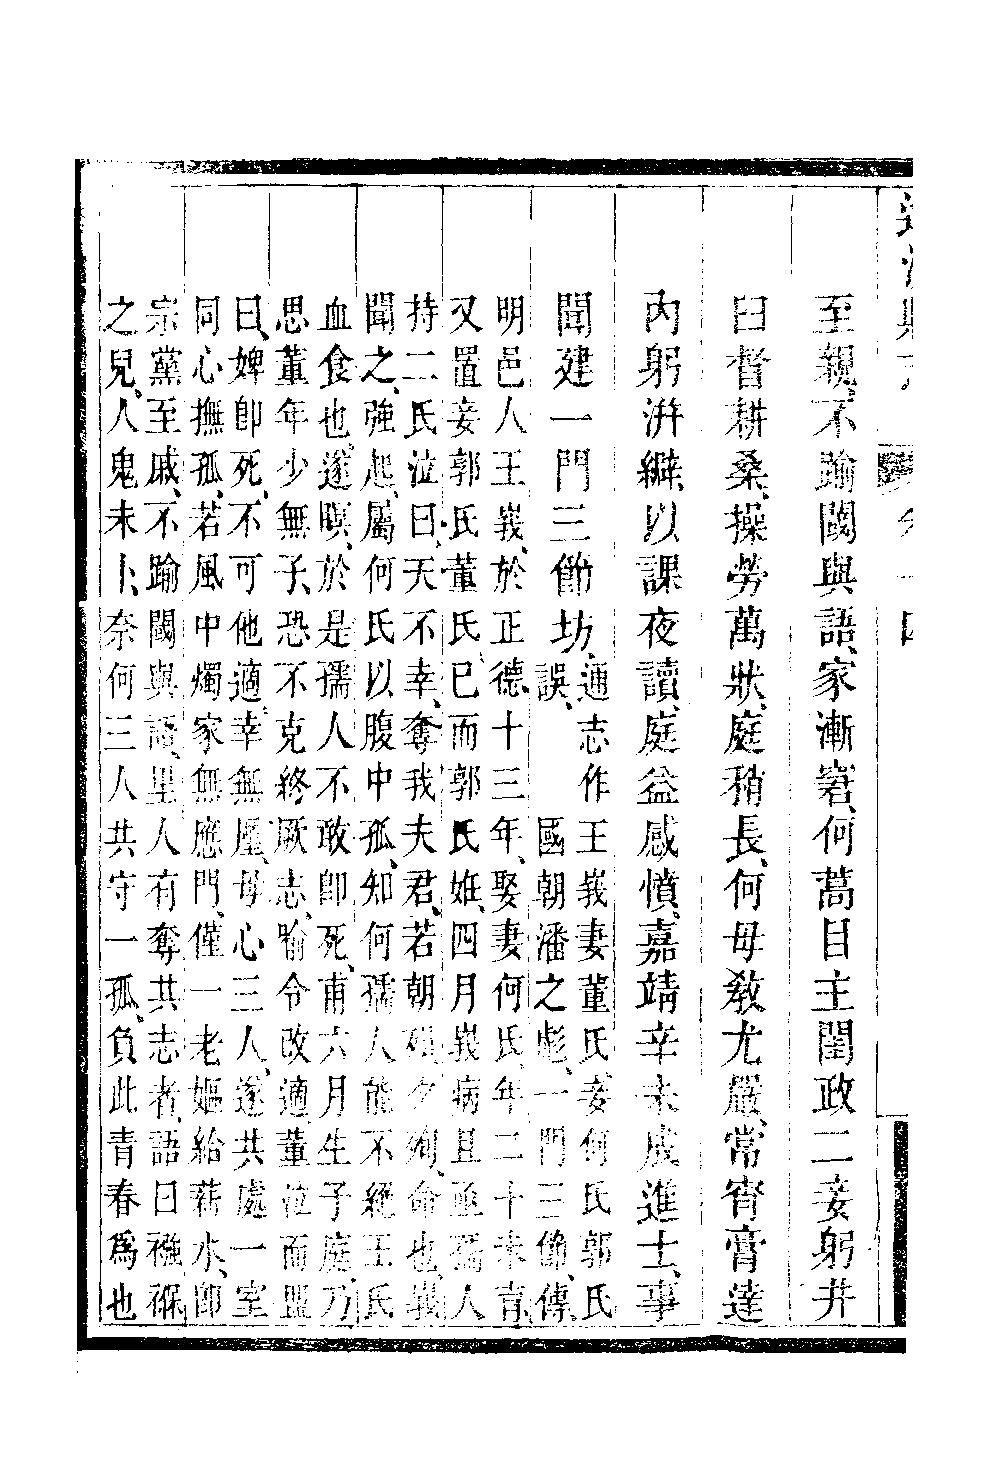 至親、不踰閾與語、家漸窘、何蒿目主閨政二妾躬井
臼督耕桑、操勞萬狀、庭稍長、何毋教尤嚴、常宵膏達
內躬洴澼、以課夜讀、庭益感憤、嘉靖辛未成進士、事
聞建一門三節坊、
通志作王峩妻董氏妾何氏郭氏
誤、國朝潘之彪、一門三節傳、
明邑人王峩、於正德十三年、娶妻何氏、年二十未育、
又置妾郭氏董氏、已而郭氏姙、四月峩病且亟、孺人
持二氏泣曰、天不幸、奪我夫君、若朝殞夕殉、命也、峩
聞之、強起、屬何氏以腹中孤、知何孺人能不絕王氏
血食也、遂瞑、於是孺人不敢卽死、甫六月生子庭、乃
思董年少無子、恐不克終厥志、喻令改適、董泣而盟
曰、婢卽死、不可他適、幸無母心、三人、遂共處一室
同心撫孤、若風中燭、家無應門、僅一老嫗給薪水、卽
宗黨至戚、不踰閾與語、里人有奪其志者、語曰襁褓
之兒、人鬼未卜、奈何三人共守一孤、負此青春爲也